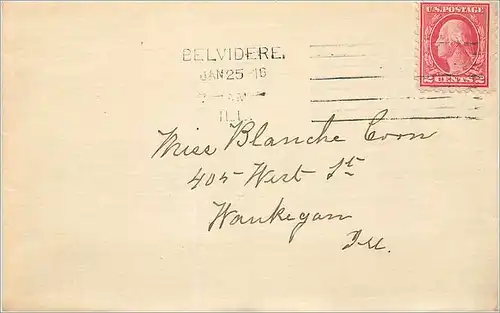 U.S. POSTAGE
2 CENTS 2
BELVIDERE,
JAN 25 16
7 - AM
ILL.
Miss Blanche Coon
405 West St.
Waukegan
Ill.